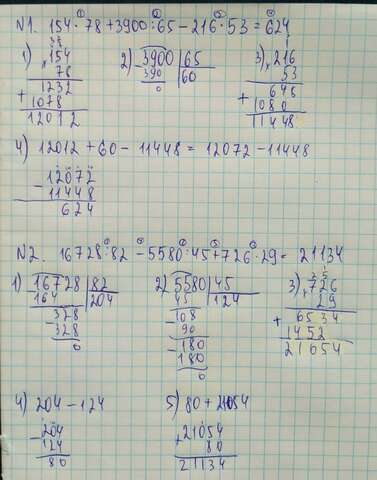 N1. 154·78+3900:65-216·53=624
1) 154 2) 3900 65 3) 216
78 390 60 53
1232 0 648
1078 1080
12012 11448
4) 12012+60-11448=12072-11448
- 12072
11448
624
N2. 16728:82-5580:45+726·29=21134
1) 16728 82 2) 5580 45 3) 726
164 204 45 124 29
328 108 6534
328 90 1452
0 180 21054
180
0
4) 204-124 5) 80+21054
- 204 + 21054
124 80
80 21134